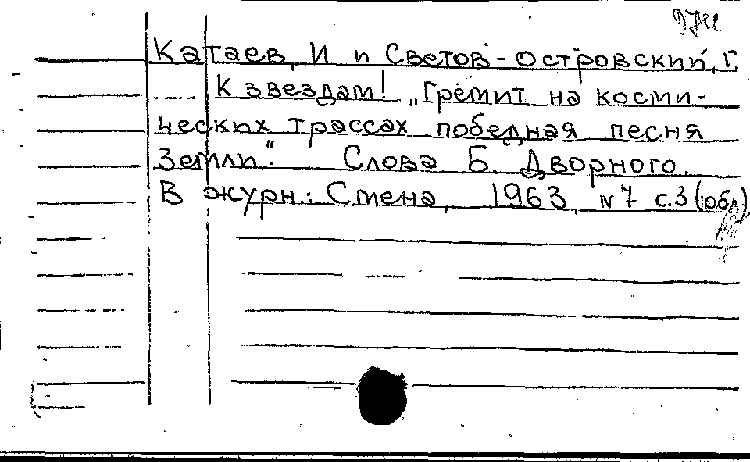 Катаев, И и Светов-Островский, Г.
К звездам! "Гремит на косми-
ческих трассах победная песня
Земли". Слова Б. Дворного.
В журн: Смена, 1963, N7 с.3 (обл)